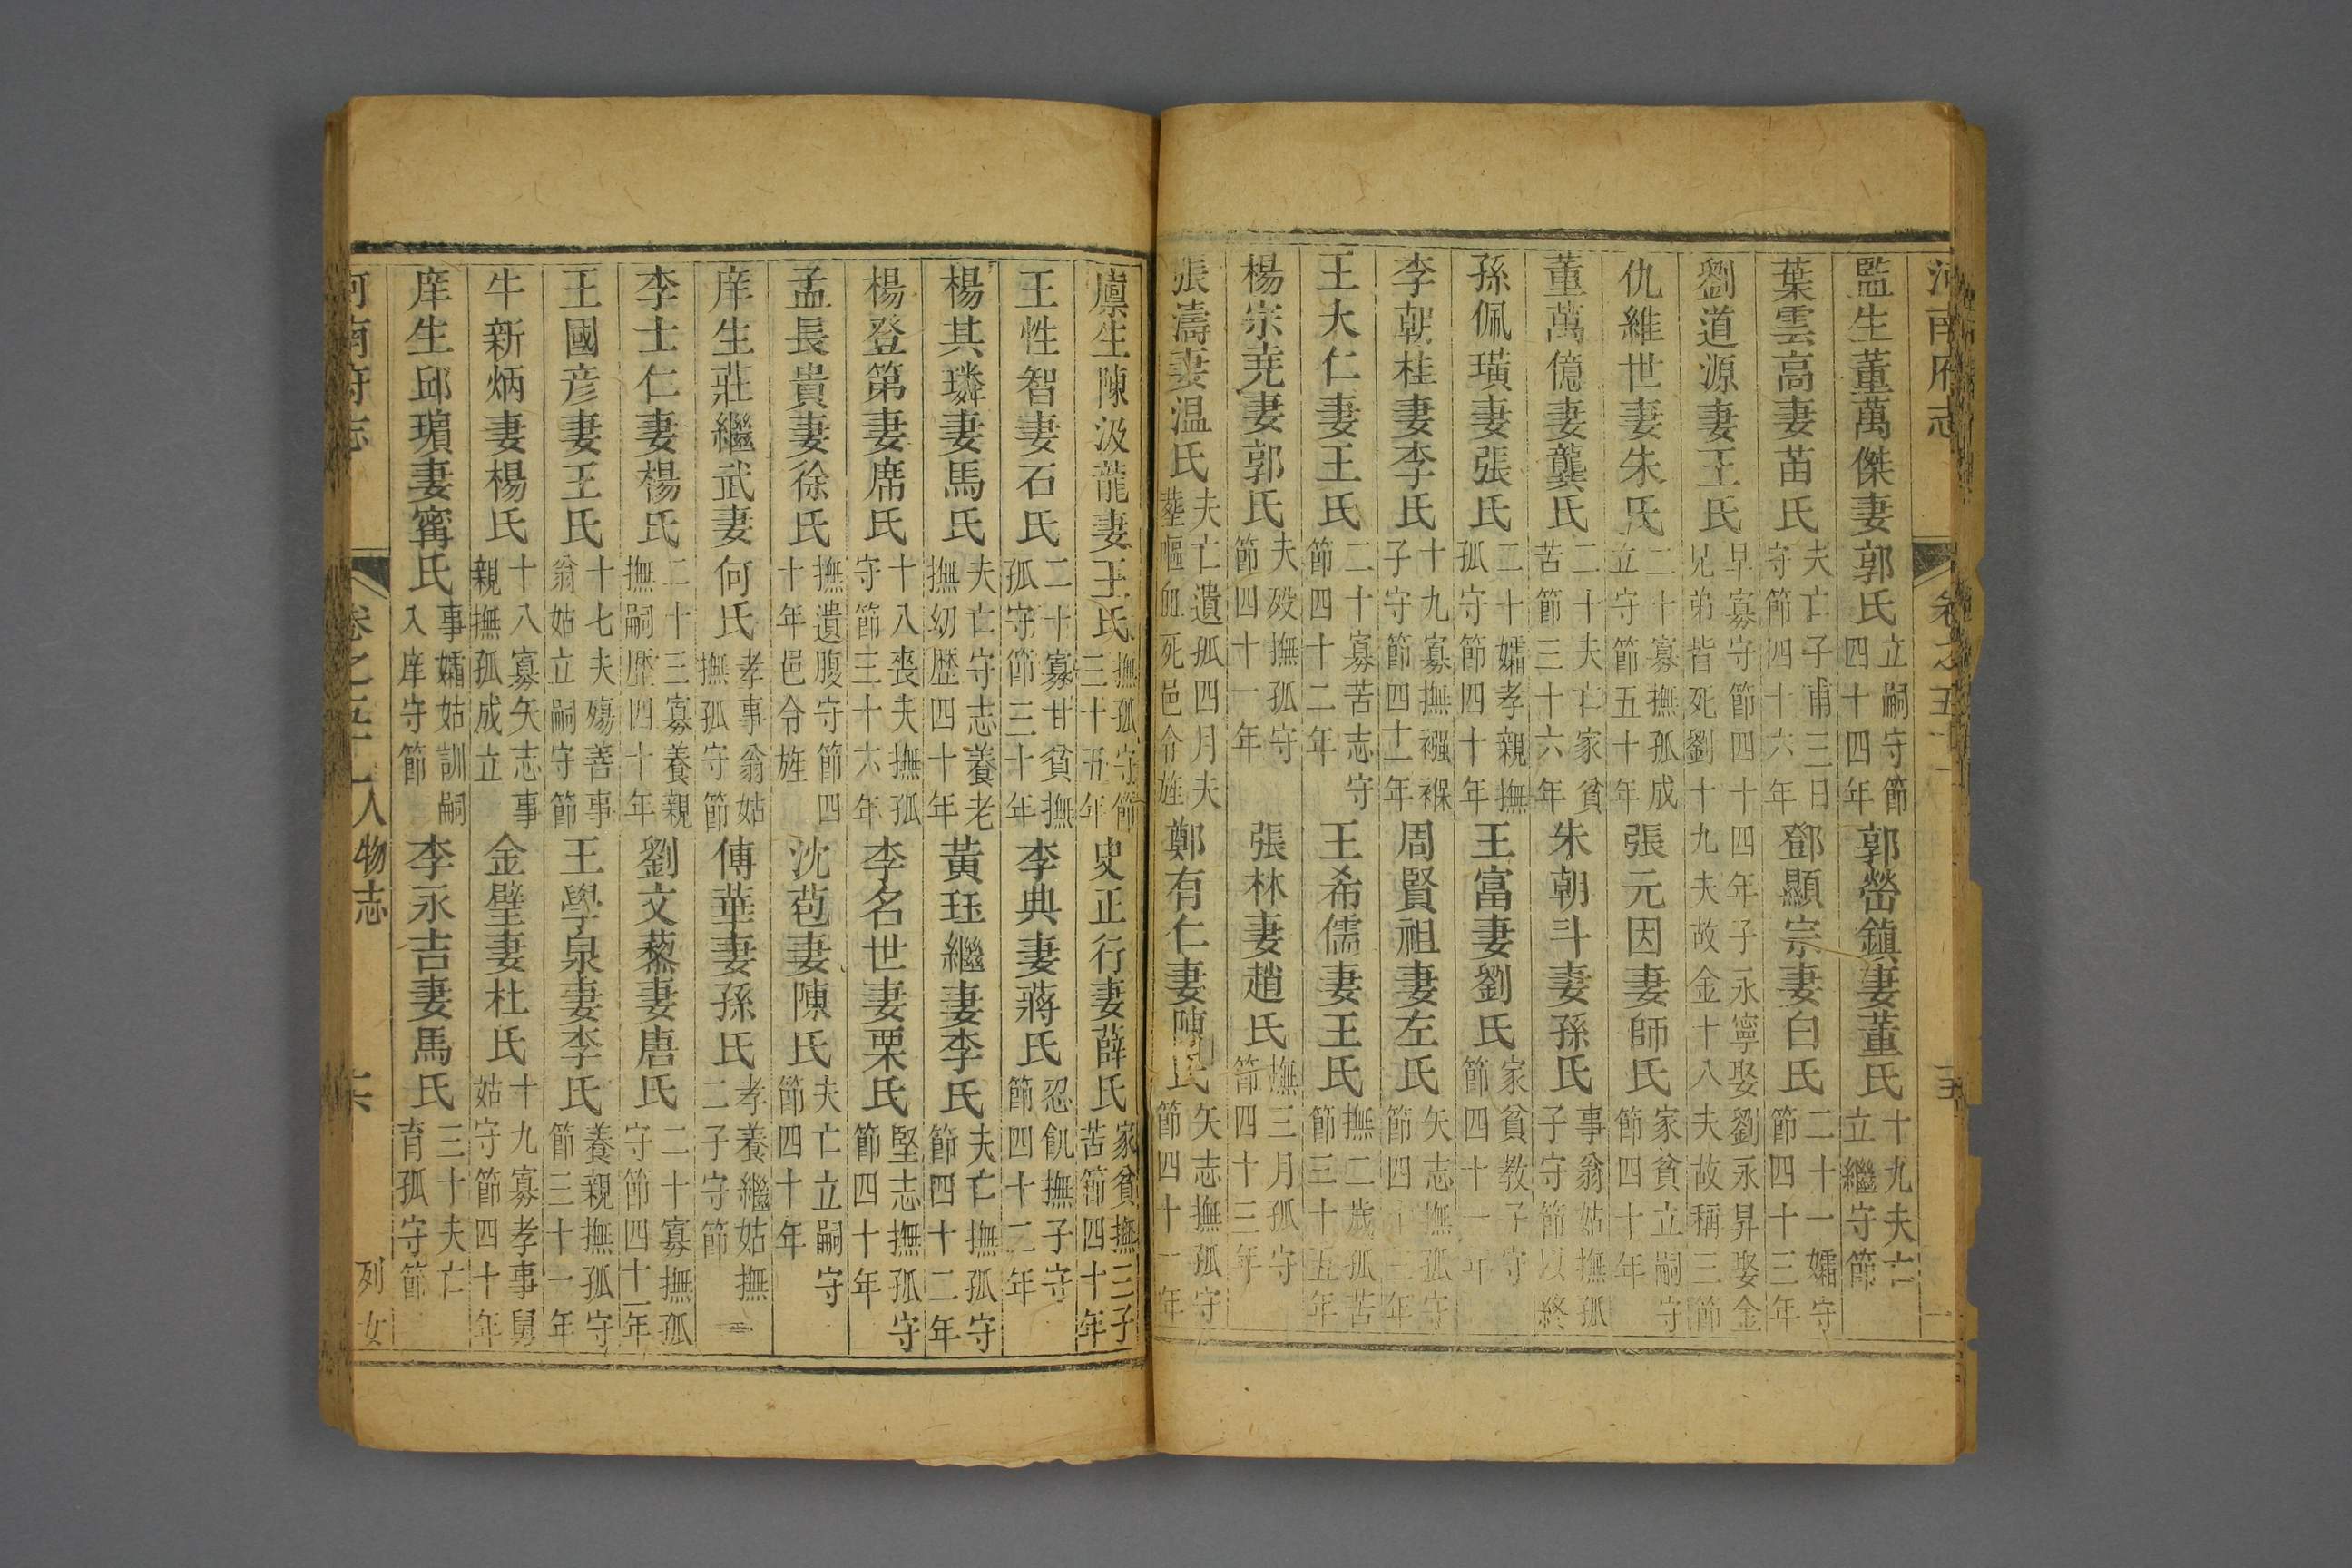 河南府志 卷之五十一 人物志
監生董萬傑妻郭氏 立嗣守節四十四年 郭嶅鎮妻董氏 十九夫亡立繼守節
葉雲高妻苗氏 夫亡子甫三日守節四十六年 鄧顯宗妻白氏 二十一孀守節四十三年
劉道源妻王氏 早寡守節四十四年子永寧娶劉永昇娶金兄弟皆死劉十九夫故金十八夫故稱三節
仇維世妻朱氏 二十寡撫孤成立守節五十年 張元因妻師氏 家貧立嗣守節四十年
董萬億妻龔氏 二十夫亡家貧苦節三十六年 朱朝斗妻孫氏 事翁姑撫孤子守節以終
孫佩璜妻張氏 二十孀孝親撫孤守節四十年 王富妻劉氏 家貧教子守節四十一年
李朝桂妻李氏 十九寡撫襁褓子守節四十一年 周賢祖妻左氏 矢志撫孤守節四十三年
王大仁妻王氏 二十寡苦志守節四十二年 王希儒妻王氏 撫二歲孤苦節三十五年
楊宗堯妻郭氏 夫歿撫孤守節四十一年 張林妻趙氏 撫三月孤守節四十三年
張濤妻温氏 夫亡遺孤四月夫葬嘔血死邑令旌 鄭有仁妻陳氏 矢志撫孤守節四十一年
廩生陳汲龍妻王氏 撫孤守節三十五年 史正行妻薛氏 家貧撫三子苦節四十年
王性智妻石氏 二十寡甘貧撫孤守節三十年 李典妻蔣氏 忍飢撫子守節四十二年
楊其璘妻馬氏 夫亡守志養老撫幼歴四十年 黃珏繼妻李氏 夫亡撫孤守節四十二年
楊登第妻席氏 十八喪夫撫孤守節三十六年 李名世妻栗氏 堅志撫孤守節四十年
孟長貴妻徐氏 撫遺腹守節四十年邑令旌 沈苞妻陳氏 夫亡立嗣守節四十年
庠生莊繼武妻何氏 孝事翁姑撫孤守節 傅華妻孫氏 孝養繼姑撫二子守節
李士仁妻楊氏 二十三寡養親撫嗣歴四十年 劉文藜妻唐氏 二十寡撫孤守節四十一年
王國彦妻王氏 十七夫殤善事翁姑立嗣守節 王學泉妻李氏 養親撫孤守節三十一年
牛新炳妻楊氏 十八寡矢志事親撫孤成立 金璧妻杜氏 十九寡孝事舅姑守節四十年
庠生邱璸妻甯氏 事孀姑訓嗣入庠守節 李永吉妻馬氏 三十夫亡育孤守節
河南府志 卷之五十一 人物志 列女